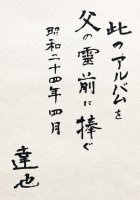 此のアルバムを
父の霊前に捧ぐ
昭和二十四年四月
達也